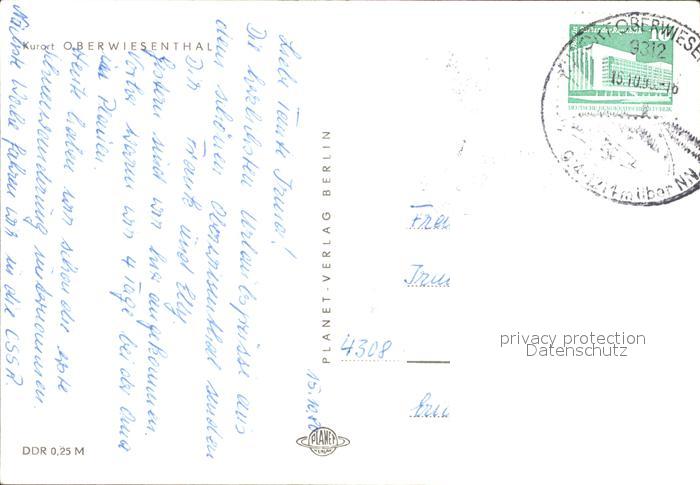 Kurort OBERWIESENTHAL
Liebe Tante Irma!
Die herzlichsten Urlaubsgrüsse aus
dem schönen Oberwiesenthal senden
Dir Frank und Elly.
Gestern sind wir hier angekommen.
Vorher waren wir 4 Tage bei der Oma
in Plauen.
Heute haben wir schon die erste
unternommen.
Nächste Woche fahren wir in die CSSR.
15.10.
PLANET-VERLAG BERLIN
PLANET
VERLAG
DDR 0,25 M
10
DEUTSCHE DEMOKRATISCHE REPUBLIK
KURORT OBERWIESEN
9312
15.10.
914 m über NN
Frau
4308
privacy protection
Datenschutz